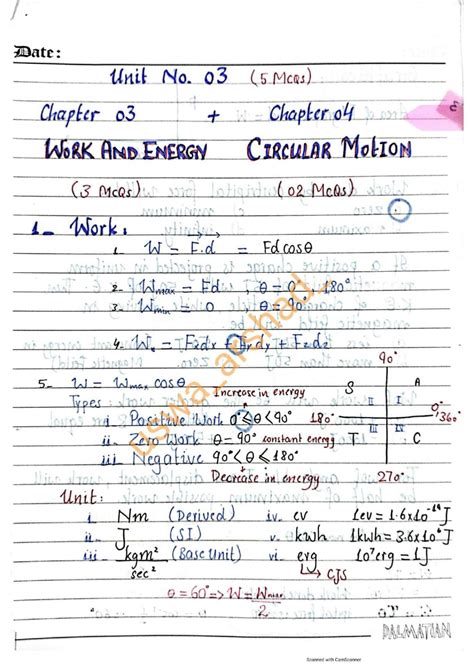 Date:
Unit No. 03 (5 McQs)
Chapter 03 + Chapter 04
WORK AND ENERGY CIRCULAR MOTION
(3 McQs) (02 McQs)
1_ Work:
1. W = F.d = Fdcosθ
2. Wmax = Fd ; θ = 0°, 180°
3. Wmin = 0 ; θ = 90°
4. W = Fxdx + Fydy + Fzdz
5. W = Wmax cosθ
Types: Increase in energy
i. Positive Work 0°<θ<90°
ii. Zero Work θ = 90° constant energy
iii. Negative 90°<θ<180°
Decrease in energy
90°
S A
II I
180° 0° 360°
III IV
T C
270°
Unit:
i. Nm (Derived) iv. ev 1ev = 1.6x10⁻¹⁹J
ii. J (SI) v. kwh 1kwh = 3.6x10⁶J
iii. kgm²/sec² (Base Unit) vi. erg 10⁷erg = 1J
CJS
θ = 60° => W = Wmax/2
uswa_arshad
DALMATIAN
Scanned with CamScanner